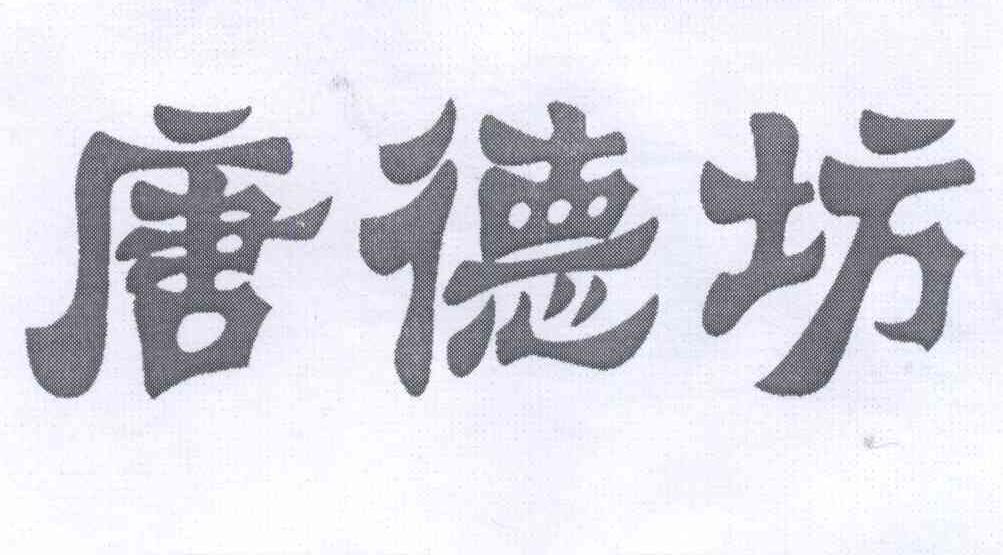 唐德坊